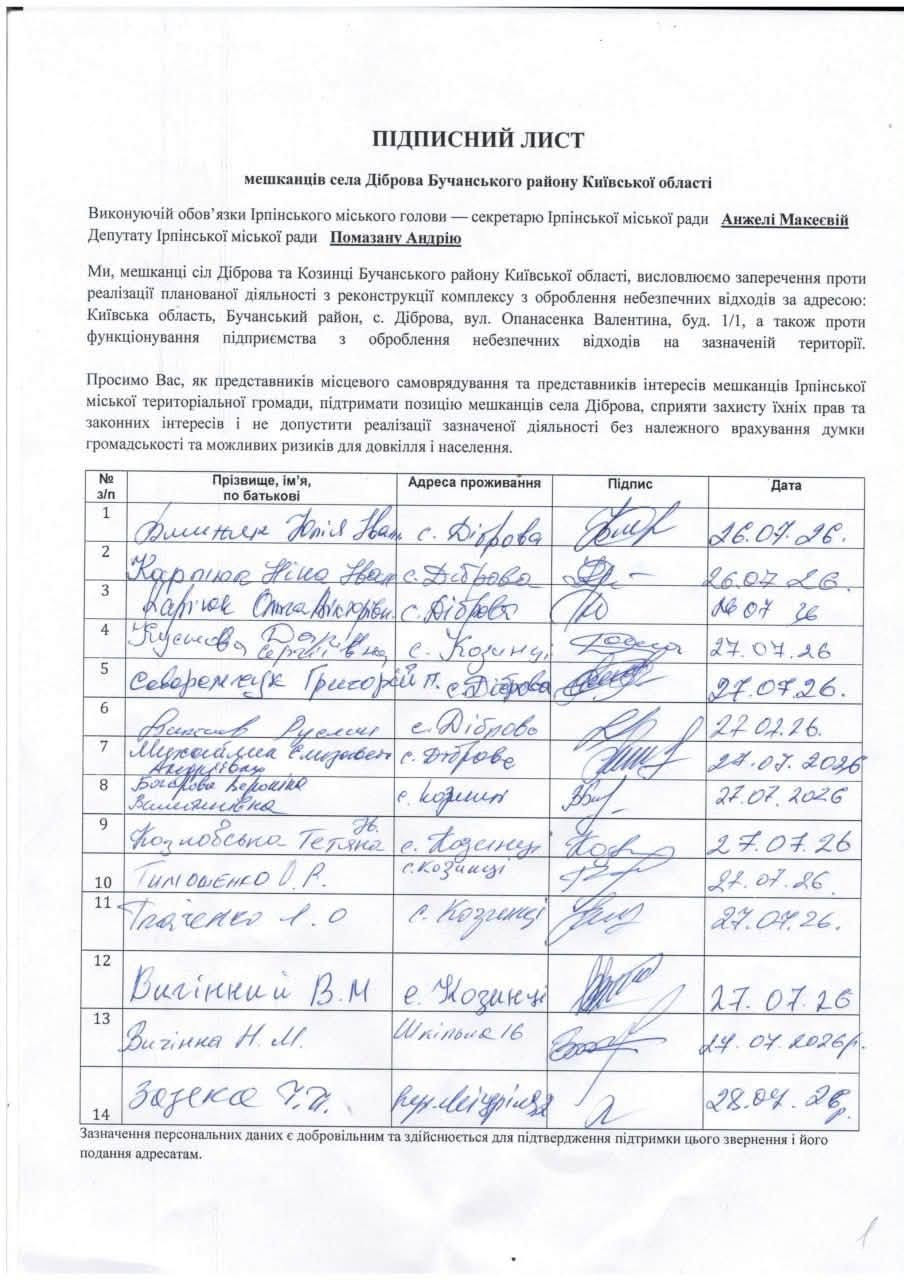 ПІДПИСНИЙ ЛИСТ
мешканців села Діброва Бучанського району Київської області
Виконуючій обов’язки Ірпінського міського голови — секретарю Ірпінської міської ради Анжелі Макеєвій
Депутату Ірпінської міської ради Помазану Андрію
Ми, мешканці сіл Діброва та Козинці Бучанського району Київської області, висловлюємо заперечення проти
реалізації планованої діяльності з реконструкції комплексу з оброблення небезпечних відходів за адресою:
Київська область, Бучанський район, с. Діброва, вул. Опанасенка Валентина, буд. 1/1, а також проти
функціонування підприємства з оброблення небезпечних відходів на зазначеній території.
Просимо Вас, як представників місцевого самоврядування та представників інтересів мешканців Ірпінської
міської територіальної громади, підтримати позицію мешканців села Діброва, сприяти захисту їхніх прав та
законних інтересів і не допустити реалізації зазначеної діяльності без належного врахування думки
громадськості та можливих ризиків для довкілля і населення.
№ з/п Прізвище, ім’я, по батькові Адреса проживання Підпис Дата
1 Юлія Іван с. Діброва 26.07.26.
2 Ніна Іван с. Діброва 26.07.26.
3 Ольга Вікторівн. с. Діброва 26 07 26
4 Сергіївна с. Козинці 27.07.26
5 Григорій П. с. Діброва 27.07.26.
6 Руслан с. Діброва 27.07.26.
7 Єлизавета Андріївна с. Діброва 27.07.2026
8 Вероніка с. 27.07.2026
9 Козловська Тетяна Ів. с. Козинці 27.07.26
10 Тимошенко О.Р. с. Козинці 27.07.26.
11 Ткаченко Л.О с. Козинці 27.07.26.
12 Вигінний В.М с. Козинці 27.07.26
13 Вигінна Н.М. Шкільна 16 27.07.2026р.
14 28.07.26р.
Зазначення персональних даних є добровільним та здійснюється для підтвердження підтримки цього звернення і його
подання адресатам.
1